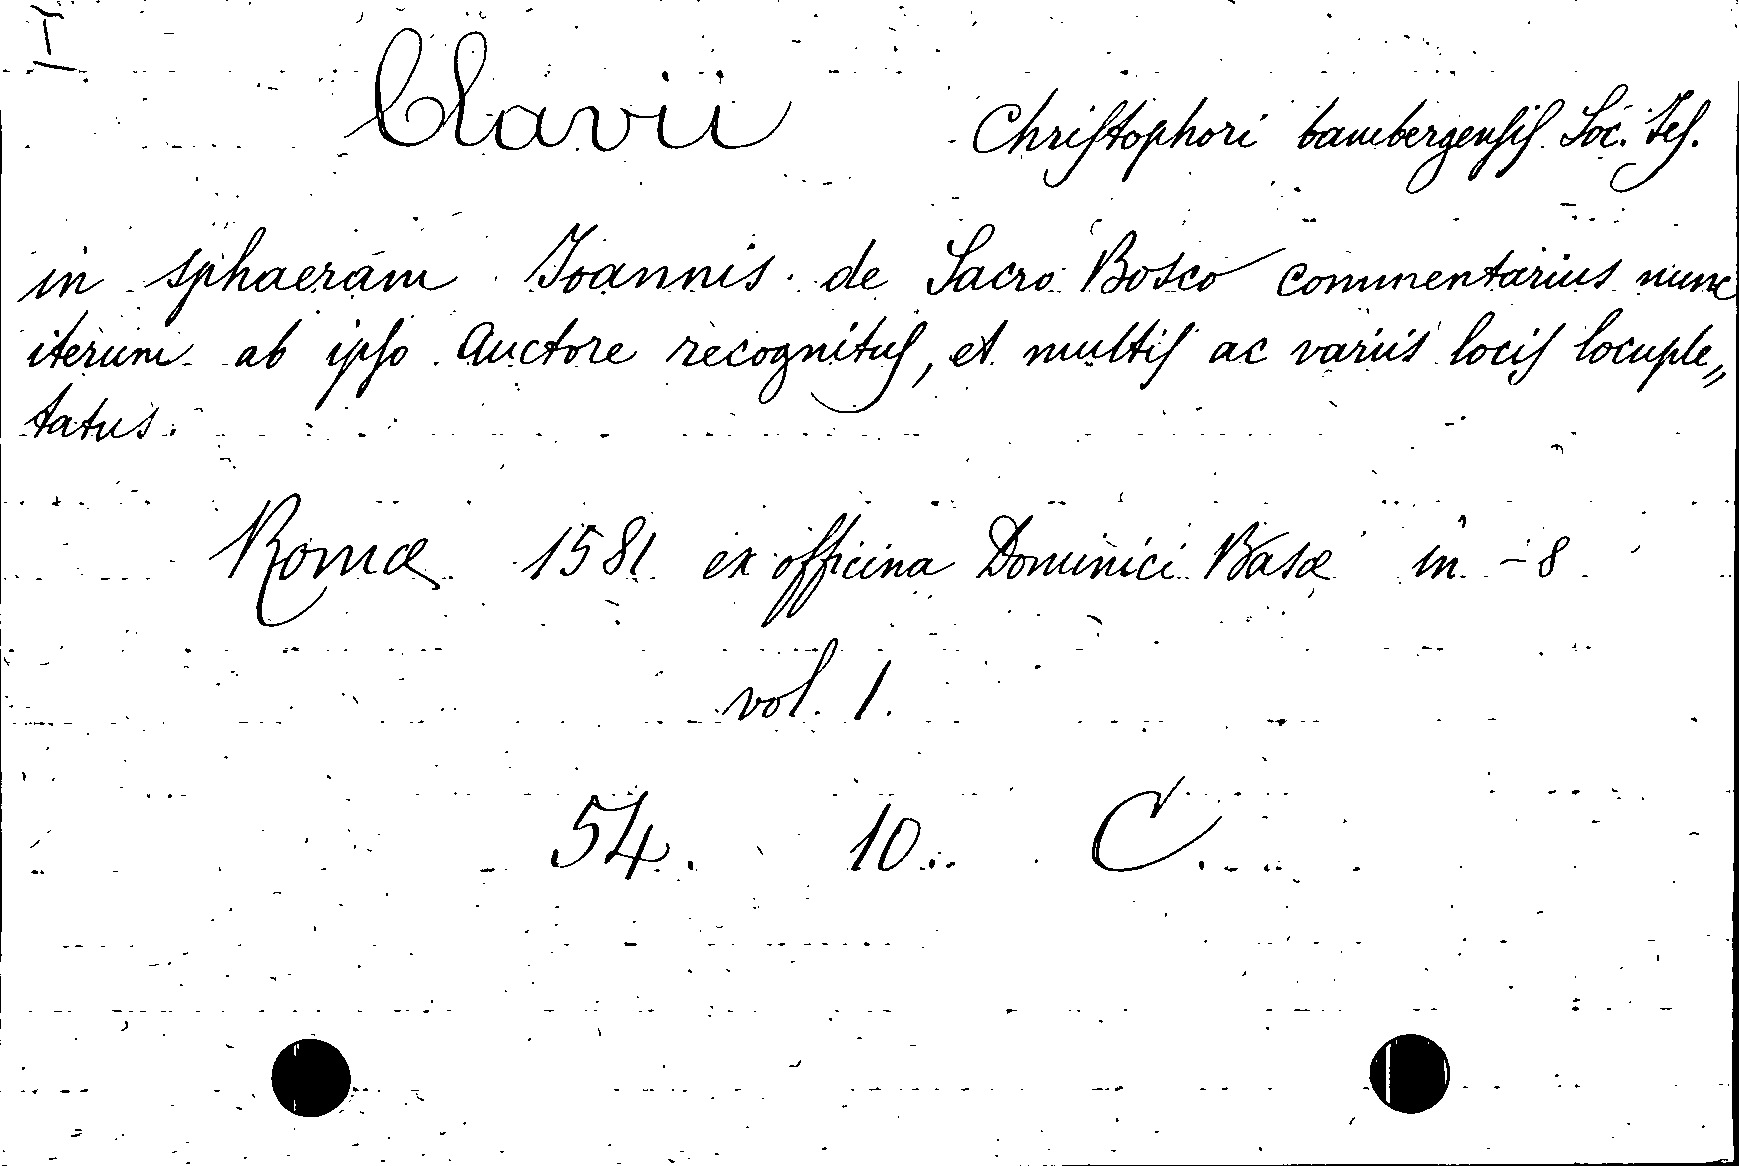 Clavii Christophori bambergensis Soc. Jes.
in sphaeram Joannis de Sacro Bosco commentarius nunc
iterum ab ipso Auctore recognitus, et multis ac variis locis locuple„
tatus.
Romæ 1581 ex officina Dominici Basæ in -8
vol. 1.
54. 10. C.